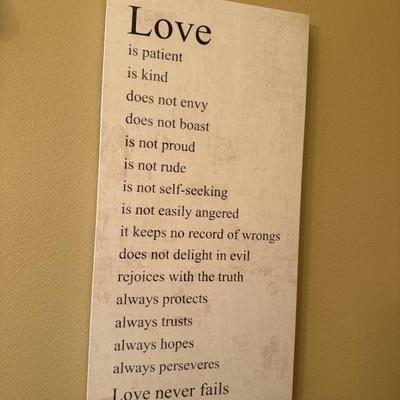 Love
is patient
is kind
does not envy
does not boast
is not proud
is not rude
is not self-seeking
is not easily angered
it keeps no record of wrongs
does not delight in evil
rejoices with the truth
always protects
always trusts
always hopes
always perseveres
Love never fails